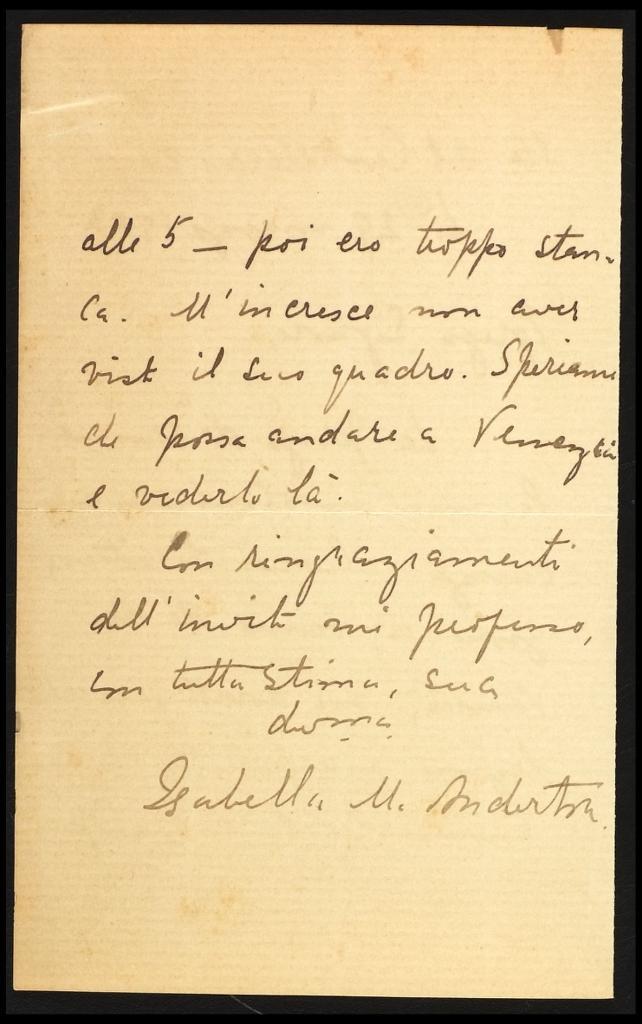 alle 5 — poi ero troppo stan-
ca. M'incresce non aver
visto il suo quadro. Speriamo
che possa andare a Venezia
e vederlo là.
Con ringraziamenti
dell'invito mi professo,
con tutta stima, sua
devma.
Isabella M. Anderton.